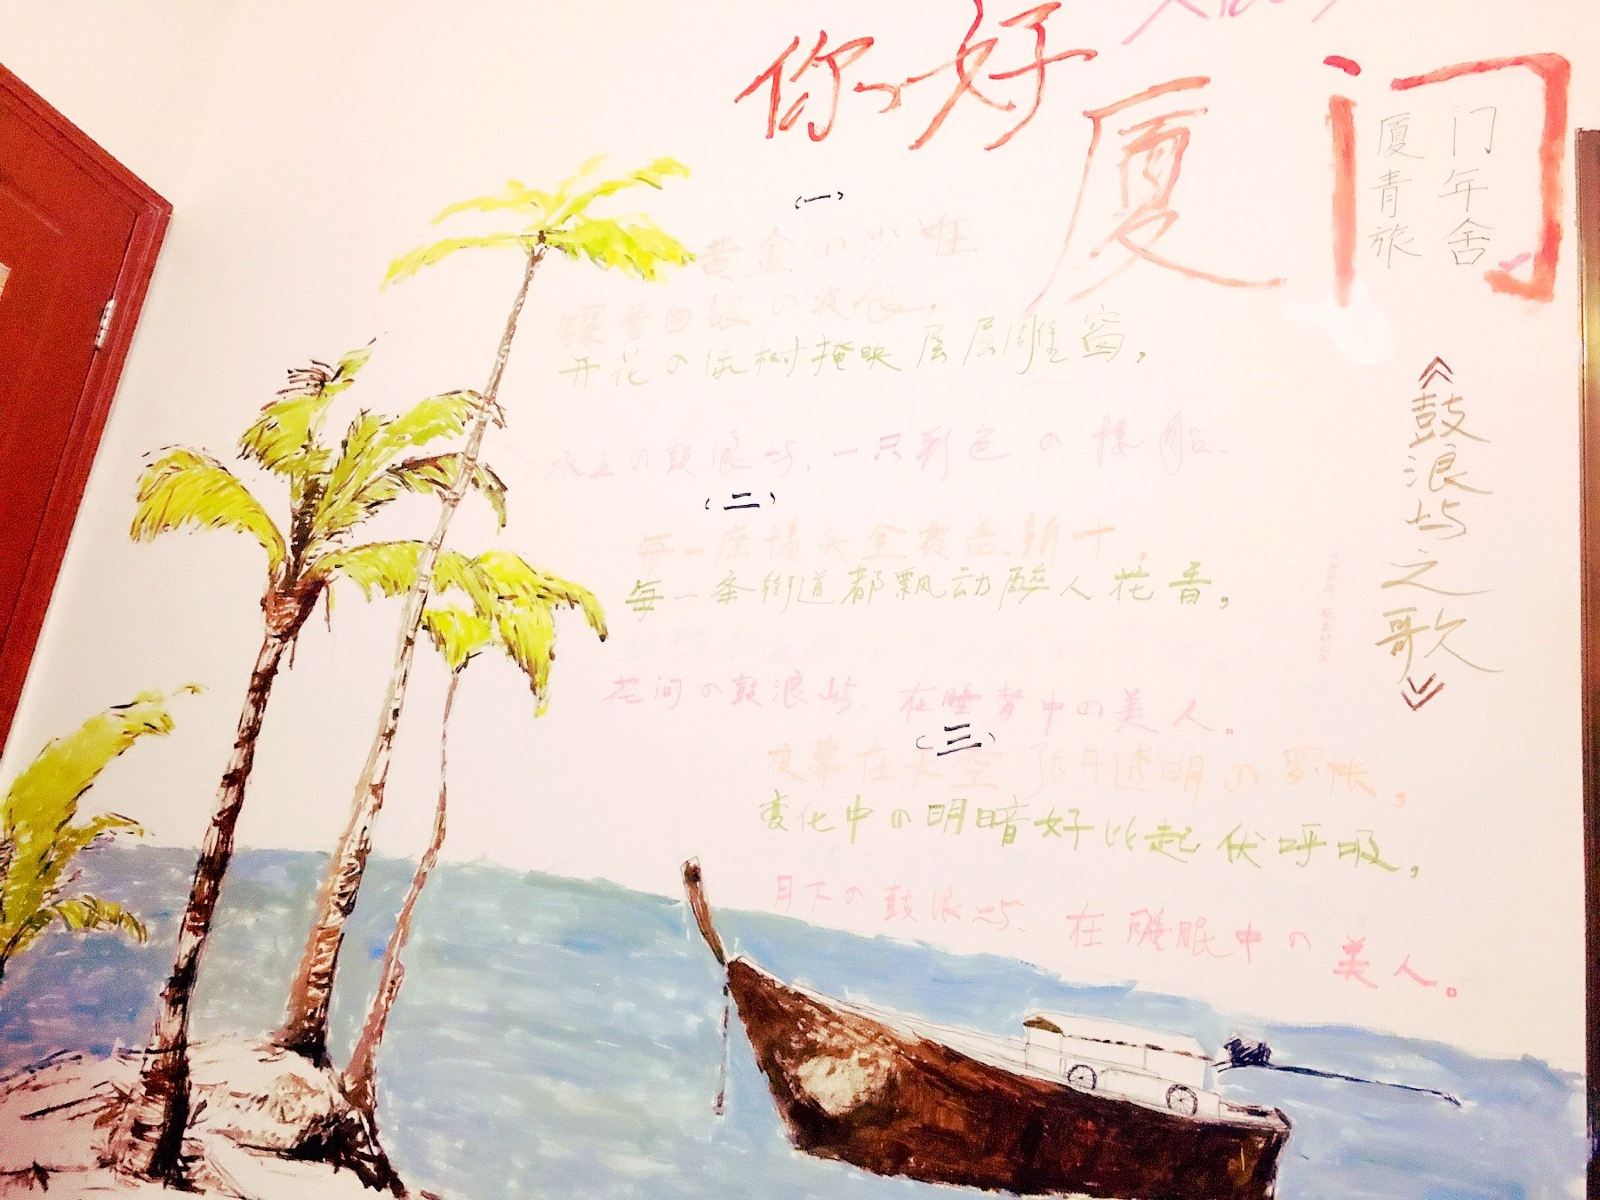 你好
厦门
厦门
青年
旅舍
《鼓浪屿之歌》
(一)
黄金の沙滩
镶着白银の波浪，
开花の绿树掩映层层雕窗，
水上の鼓浪屿，一只彩色の楼船
(二)
每一座墙头全覆盖新叶，
每一条街道都飘动醉人花香，
花间の鼓浪屿，在睡梦中の美人。
(三)
夜幕在天空张开透明の罗帐，
变化中の明暗好比起伏呼吸，
月下の鼓浪屿，在睡眠中の美人。